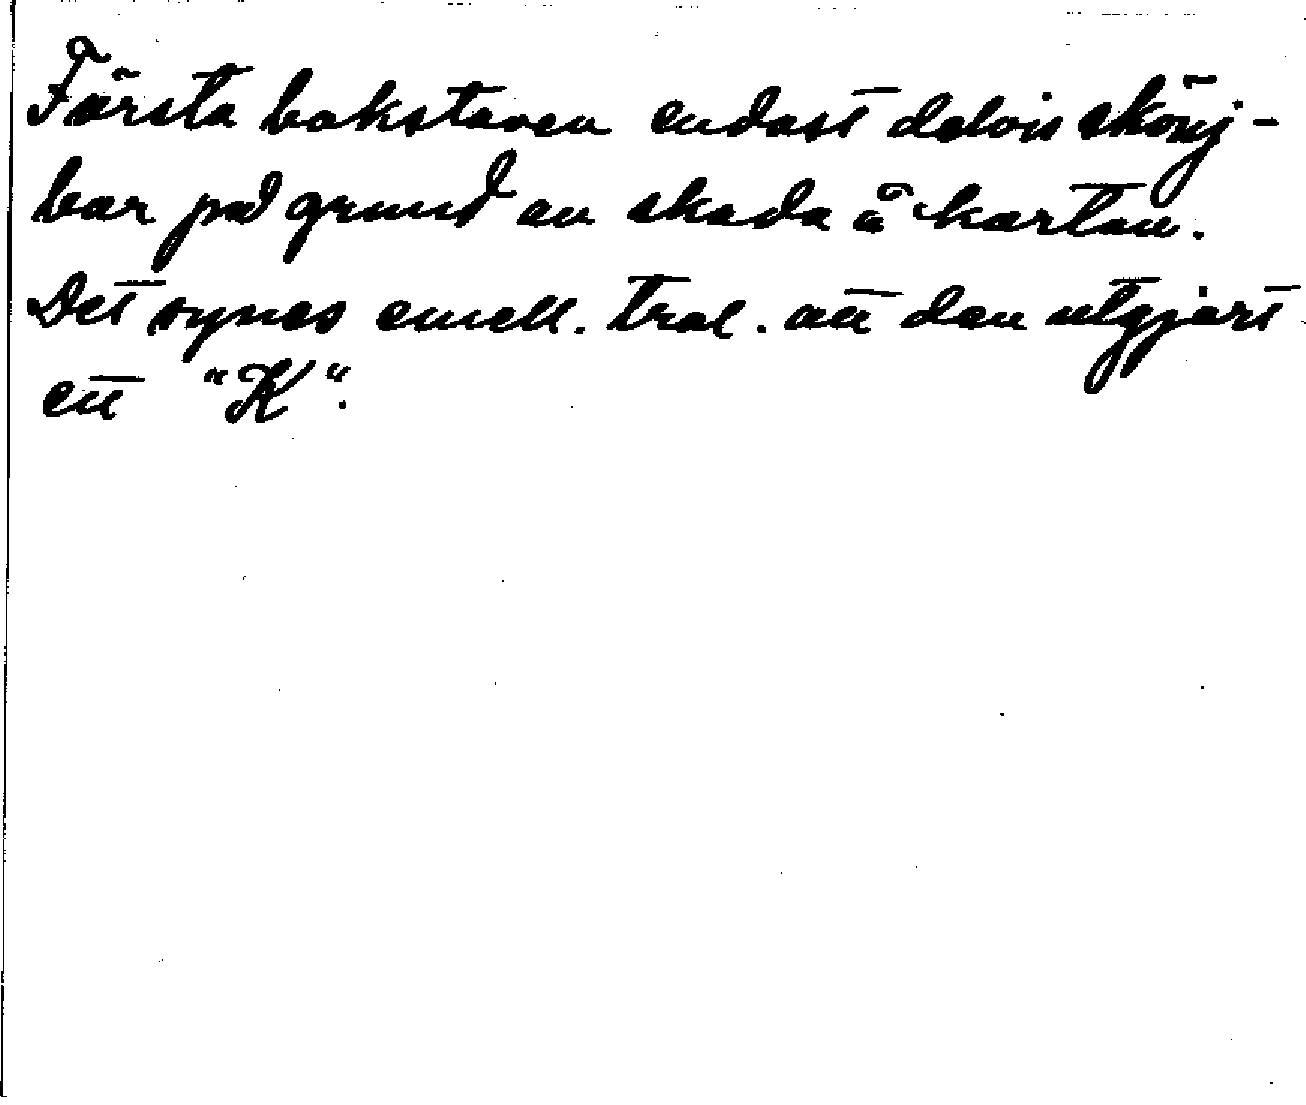 Första bokstaven endast delvis skönj-
bar på grund av skada å kartan.
Det synes emell. trol. att den utgjort
ett "K".